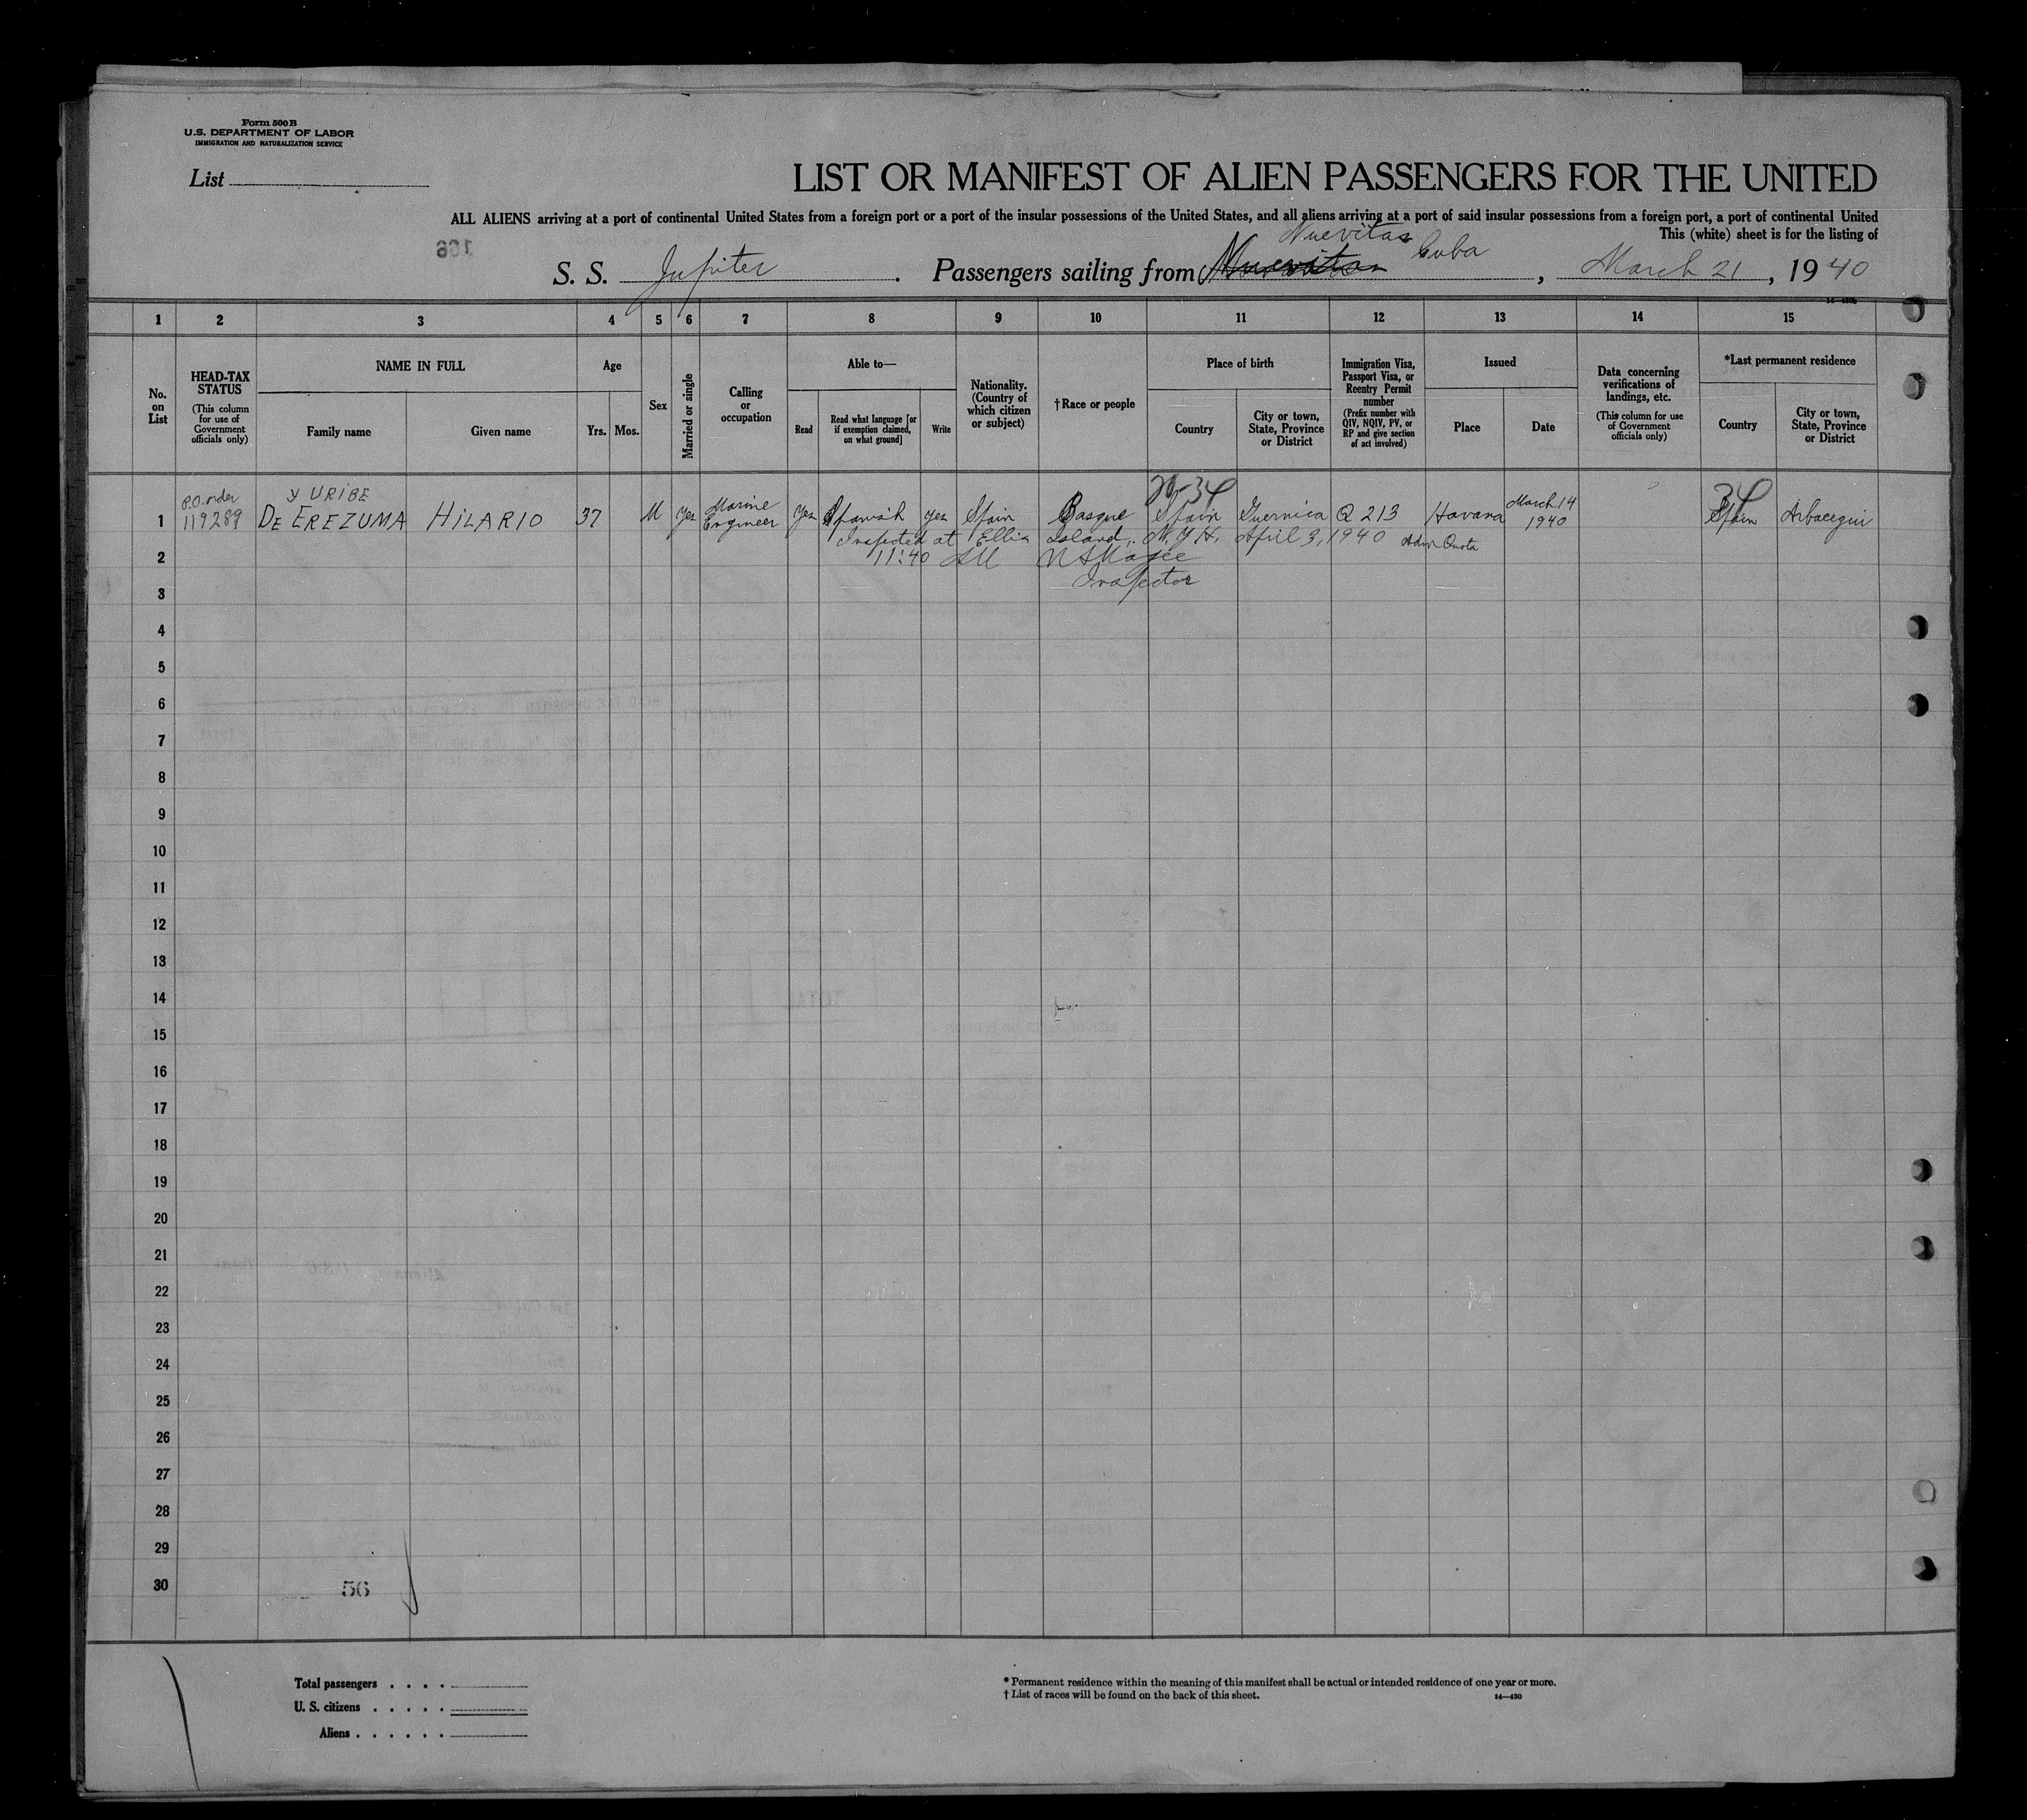 Form 500B
U.S. DEPARTMENT OF LABOR
IMMIGRATION AND NATURALIZATION SERVICE
List
LIST OR MANIFEST OF ALIEN PASSENGERS FOR THE UNITED
ALL ALIENS arriving at a port of continental United States from a foreign port or a port of the insular possessions of the United States, and all aliens arriving at a port of said insular possessions from a foreign port, a port of continental United
This (white) sheet is for the listing of
166
Nuevitas
S. S. Jupiter . Passengers sailing from Nuevitas Cuba , March 21 , 1940
1 2 3 4 5 6 7 8 9 10 11 12 13 14 15
No. on List
HEAD-TAX STATUS
(This column for use of Government officials only)
NAME IN FULL
Family name
Given name
Age
Yrs.
Mos.
Sex
Married or single
Calling or occupation
Able to—
Read
Read what language [or if exemption claimed, on what ground]
Write
Nationality. (Country of which citizen or subject)
†Race or people
Place of birth
Country
City or town, State, Province or District
Immigration Visa, Passport Visa, or Reentry Permit number
(Prefix number with QIV, NQIV, PV, or RP and give section of act involved)
Issued
Place
Date
Data concerning verifications of landings, etc.
(This column for use of Government officials only)
*Last permanent residence
Country
City or town, State, Province or District
P.O. order y URIBE 34
1 119289 DE EREZUMA HILARIO 37 M yes Marine Engineer yes Spanish yes Spain Basque Spain Guernica Q 213 Havana March 14 1940 Spain Arbacegui
Inspected at Ellis Island, N.Y.H. April 3, 1940 Adm Quota
2 11:40 AM
Inspector
3
4
5
6
7
8
9
10
11
12
13
14
15
16
17
18
19
20
21
22
23
24
25
26
27
28
29
30
56
Total passengers . . . .
U. S. citizens . . . . .
Aliens . . . . . .
* Permanent residence within the meaning of this manifest shall be actual or intended residence of one year or more.
† List of races will be found on the back of this sheet.
14—430